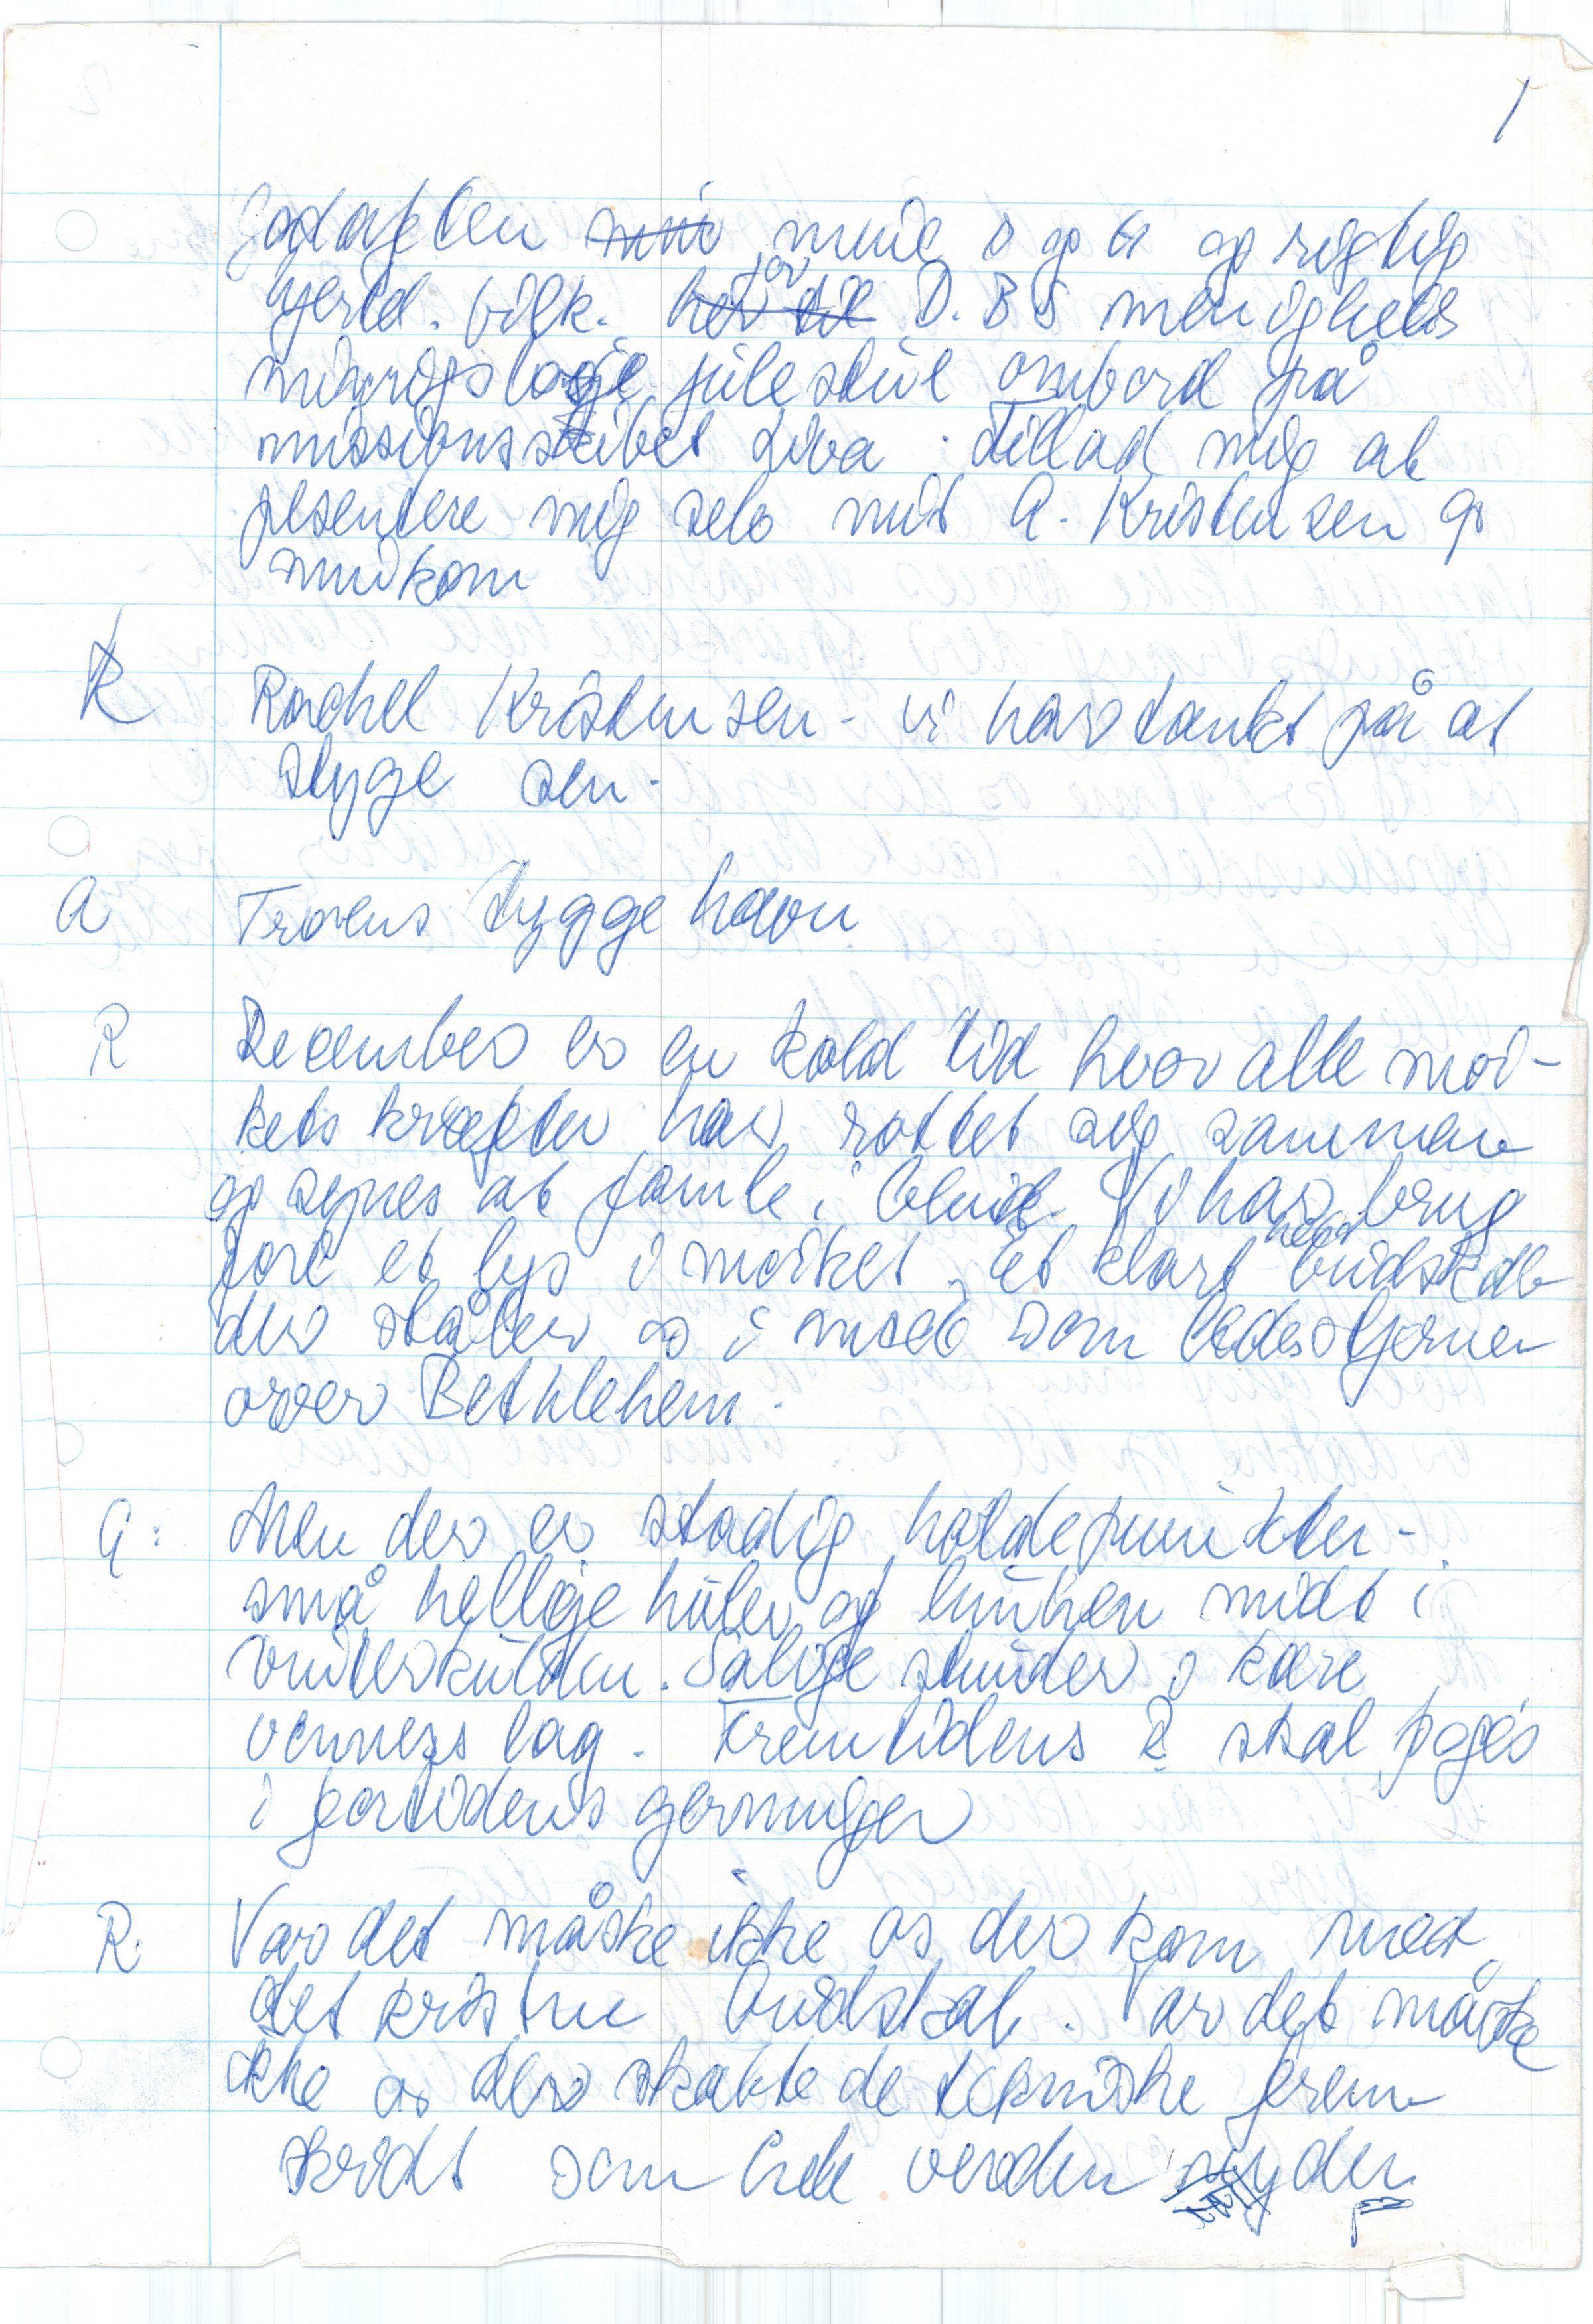 1
Godaften mine d og h og rigtig
hjertl. velk. for D. B S menigheds
julestue ombord på
missionsskibet Liva. Tillad mig at
presentere mig selv mit A. Kristensen og
min kone
R Rachel Kristensen - vi har tænkt på at
stygge sen.
A Troens trygge havn
R December er en kold tid hvor alle mør-
kets kræfter har rottet sig sammen
og synes at famle i blinde. Vi har brug
for et lys i mørket, et klart budskab
der stråler os i møde som ledestjernen
over Bethlehem.
A: Men der er stadig holdepunkter -
små hellige huler af lunhen midt i
vinterkulden. Salige stunder i kære
venners lag. Fremtidens R skal søges
i fortidens gerninger
R. Var det måske ikke os der kom med
det kristne budskab. Var det måske
ikke os der skabte de tekniske frem
skridt som hele verden nyder